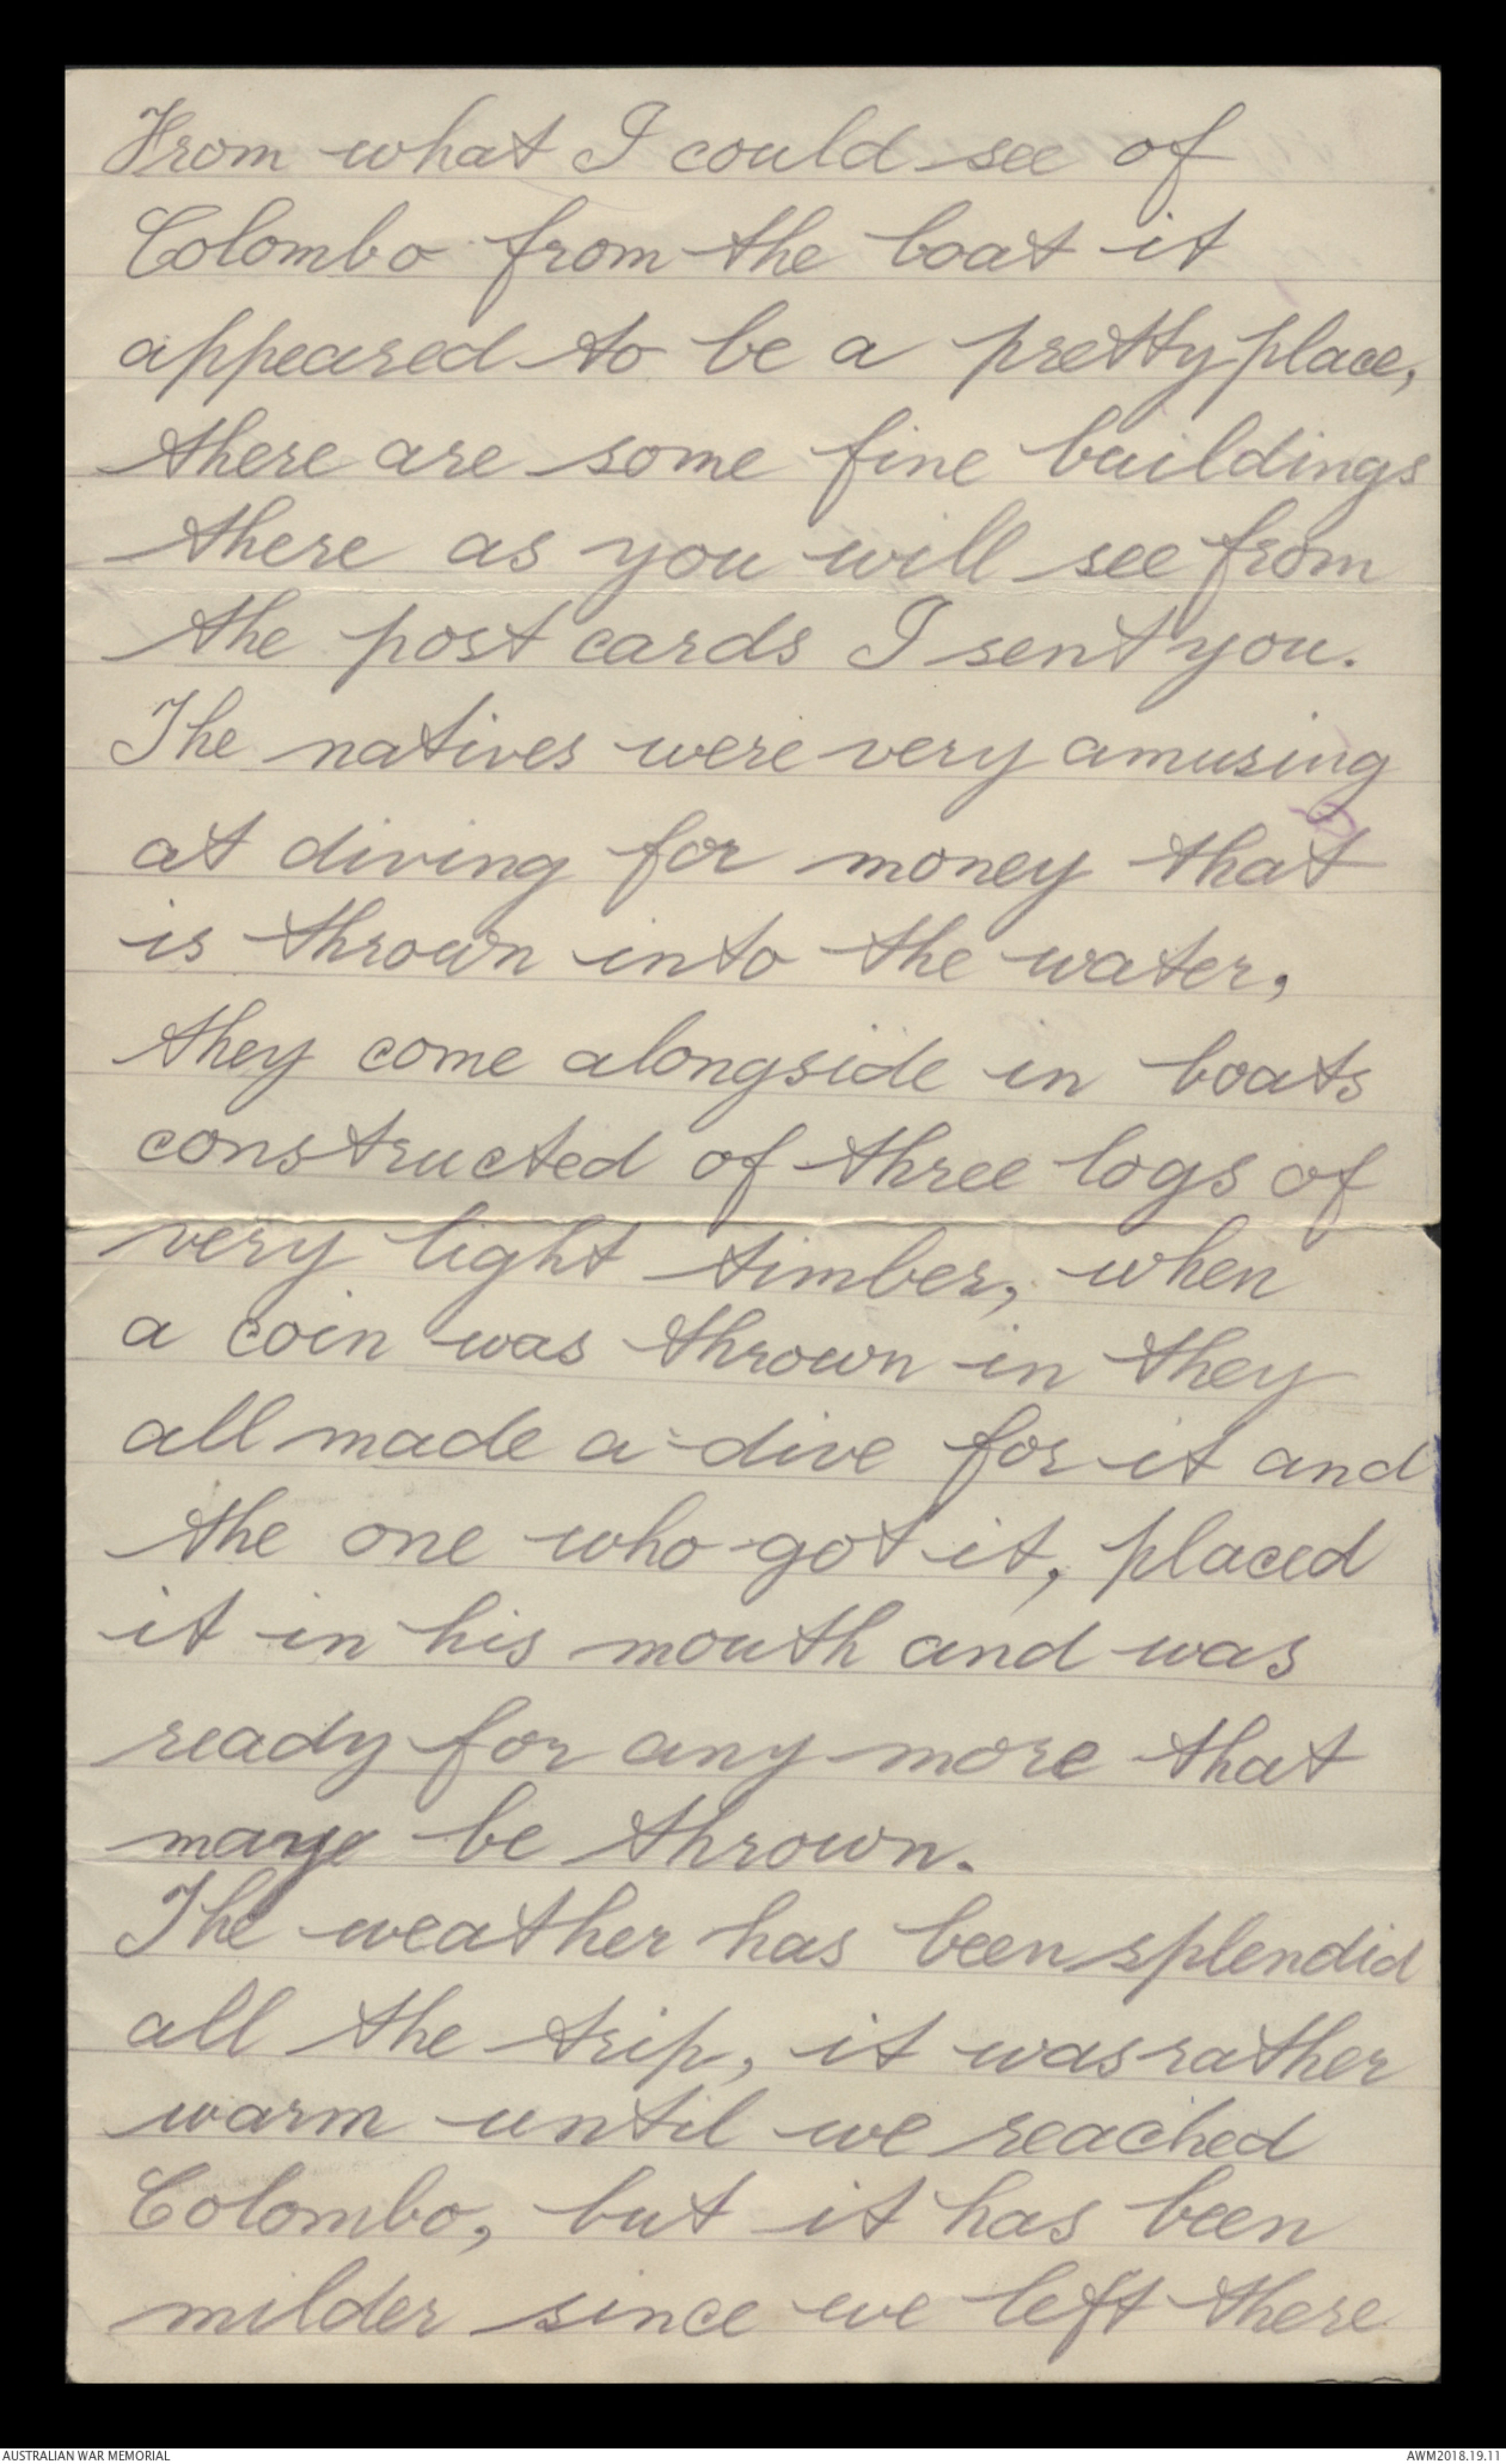 From what I could see of
Colombo from the boat it
appeared to be a pretty place,
there are some fine buildings
there as you will see from
the post cards I sent you.
The natives were very amusing
at diving for money that
is thrown into the water,
they come alongside in boats
constructed of three logs of
very light timber, when
a coin was thrown in they
all made a dive for it and
the one who got it, placed
it in his mouth and was
ready for any more that
may be thrown.
The weather has been splendid
all the trip, it was rather
warm until we reached
Colombo, but it has been
milder since we left there
AUSTRALIAN WAR MEMORIAL
AWM2018.19.11